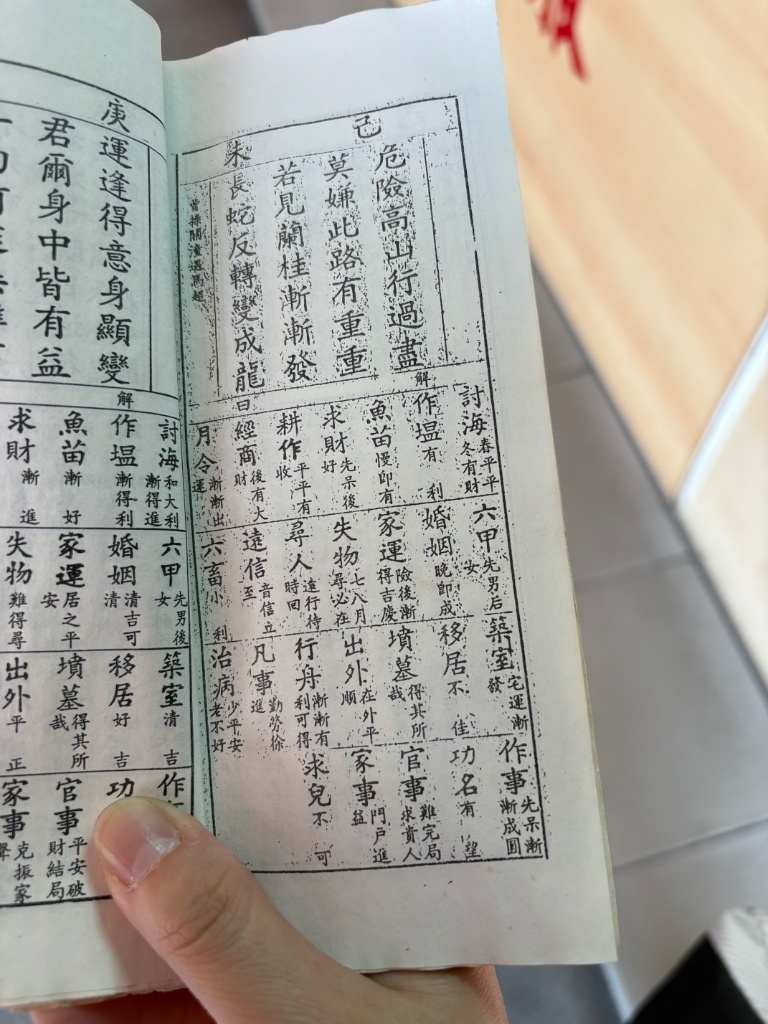 己
未
危險高山行過盡
莫嫌此路有重重
若見蘭桂漸漸發
長蛇反轉變成龍
曹操關潼遇馬超
解
曰
討海 春平平冬有財
作塭 有利
魚苗 慢即有
求財 先呆後好
耕作 平平有收
經商 後有大財
月令 漸漸出運
六甲 先男后女
婚姻 晚即成
家運 險後漸得吉慶
失物 七八月尋必在
尋人 遠行待時回
遠信 音信立至
六畜 小利
築室 宅運漸發
移居 不佳
墳墓 得其所哉
出外 在外平順
行舟 漸漸有利可得
凡事 勤勞徐進
治病 少平安老不好
作事 先呆漸漸成圓
功名 有望
官事 難完局求貴人
家事 門戶進益
求兒 不可
庚
運逢得意身顯變
君爾身中皆有益
解
討海 和大利漸得進
作塭 漸得利
魚苗 漸好
求財 漸進
六甲 先男後女
婚姻 清吉可清
家運 居之平安
失物 難得尋
築室 清吉
移居 好吉
墳墓 得其所哉
出外 平正
作
功
官事 平安破財結局
家事 克振家聲